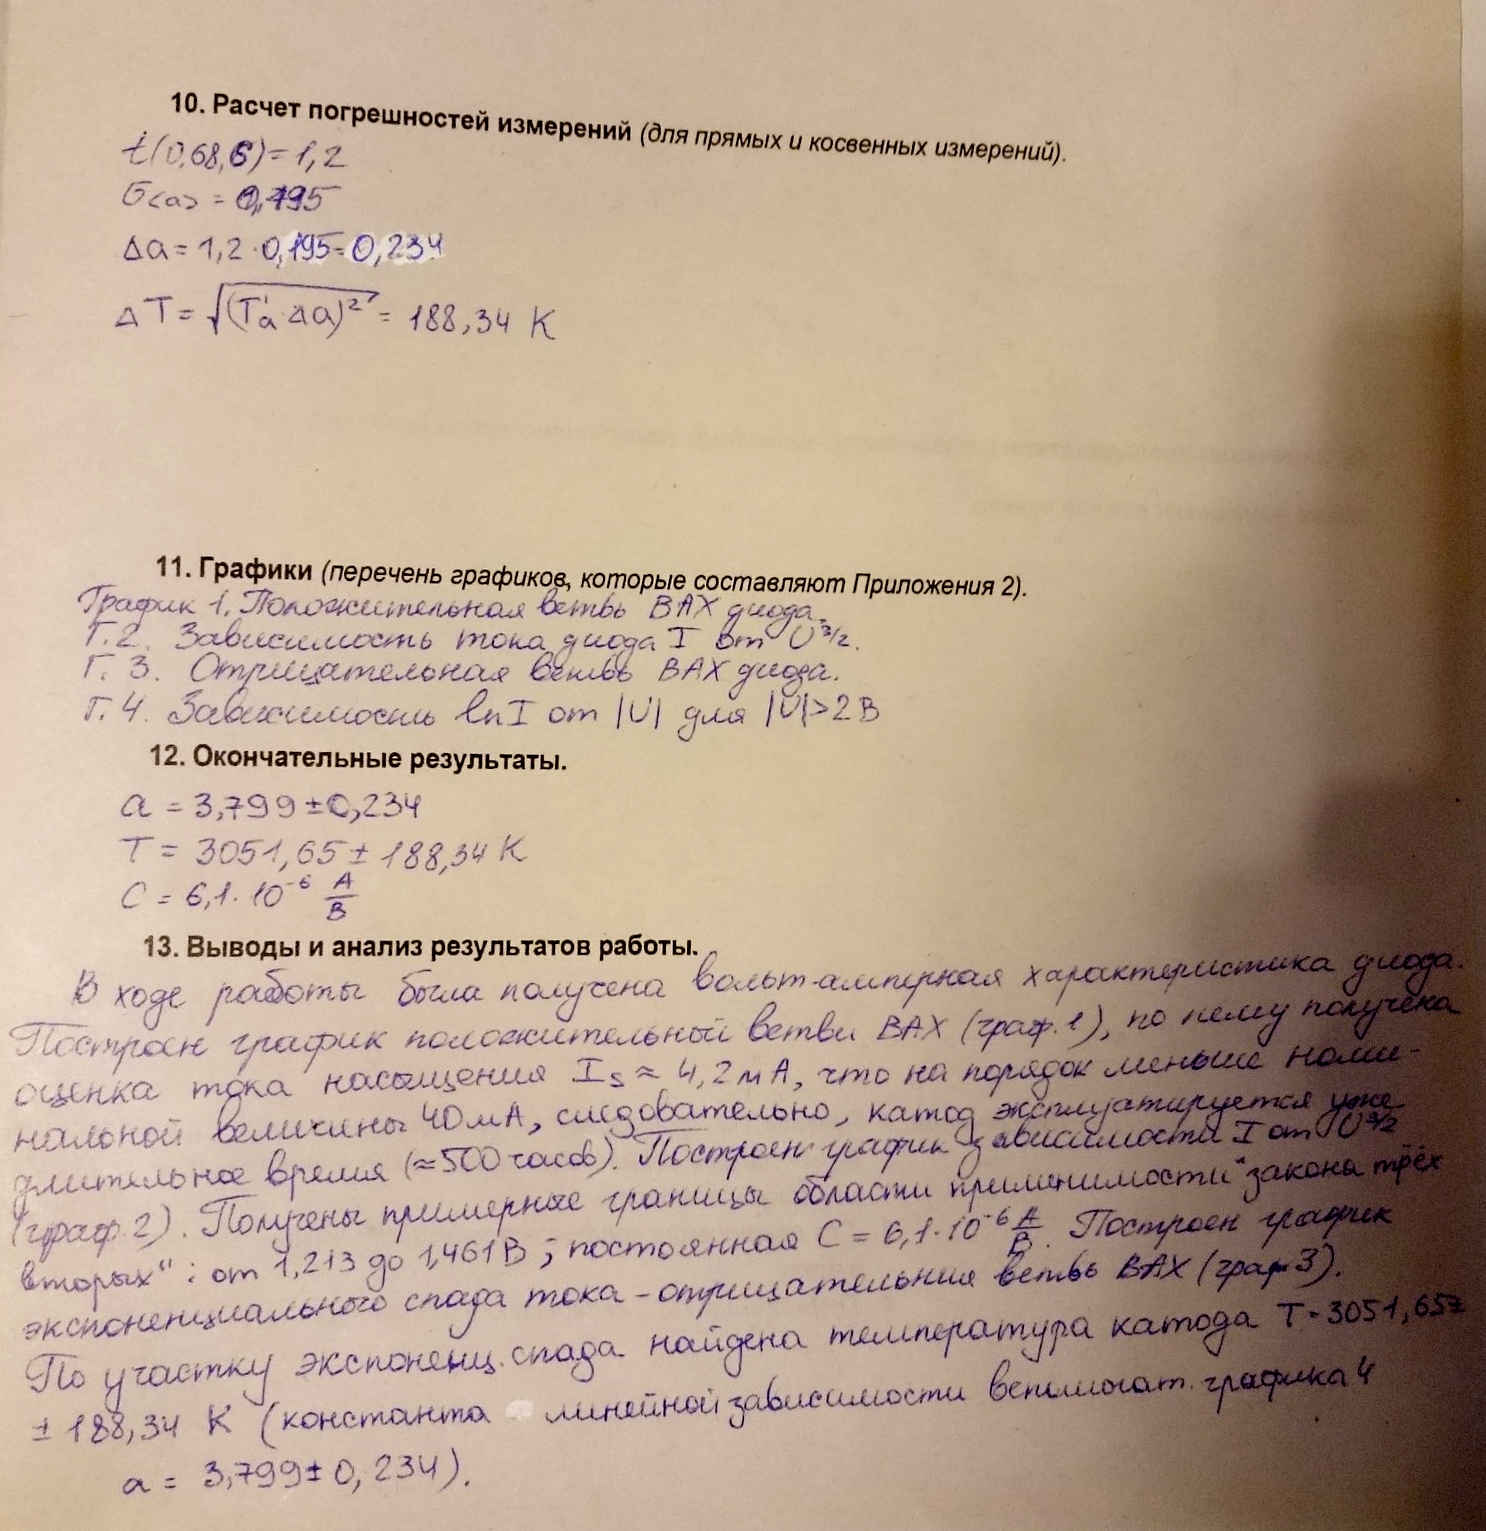 10. Расчет погрешностей измерений (для прямых и косвенных измерений).
t(0,68,6) = 1,2
σ<a> = 0,195
Δa = 1,2 · 0,195 = 0,234
ΔT = √(T'a · Δa)² = 188,34 K
11. Графики (перечень графиков, которые составляют Приложения 2).
График 1. Положительная ветвь ВАХ диода.
Г. 2. Зависимость тока диода I от U^3/2.
Г. 3. Отрицательная ветвь ВАХ диода.
Г. 4. Зависимость ln I от |U| для |U|>2 В
12. Окончательные результаты.
a = 3,799 ± 0,234
T = 3051,65 ± 188,34 K
C = 6,1 · 10⁻⁶ А/В
13. Выводы и анализ результатов работы.
В ходе работы была получена вольт-амперная характеристика диода.
Построен график положительный ветви ВАХ (граф. 1), по нему получена
оценка тока насыщения Is ≈ 4,2 мА, что на порядок меньше номи-
нальной величины 40 мА, следовательно, катод эксплуатируется уже
длительное время (≈500 часов). Построен график зависимости I от U^3/2
(граф. 2). Получены примерные границы области применимости "закона трёх
вторых" : от 1,213 до 1,461 В ; постоянная C = 6,1 · 10⁻⁶ А/В. Построен график
экспоненциального спада тока - отрицательния ветвь ВАХ (граф 3).
По участку экспоненц. спада найдена температура катода T = 3051,65±
± 188,34 K (константа линейной зависимости вспомогат. графика 4
a = 3,799 ± 0,234).